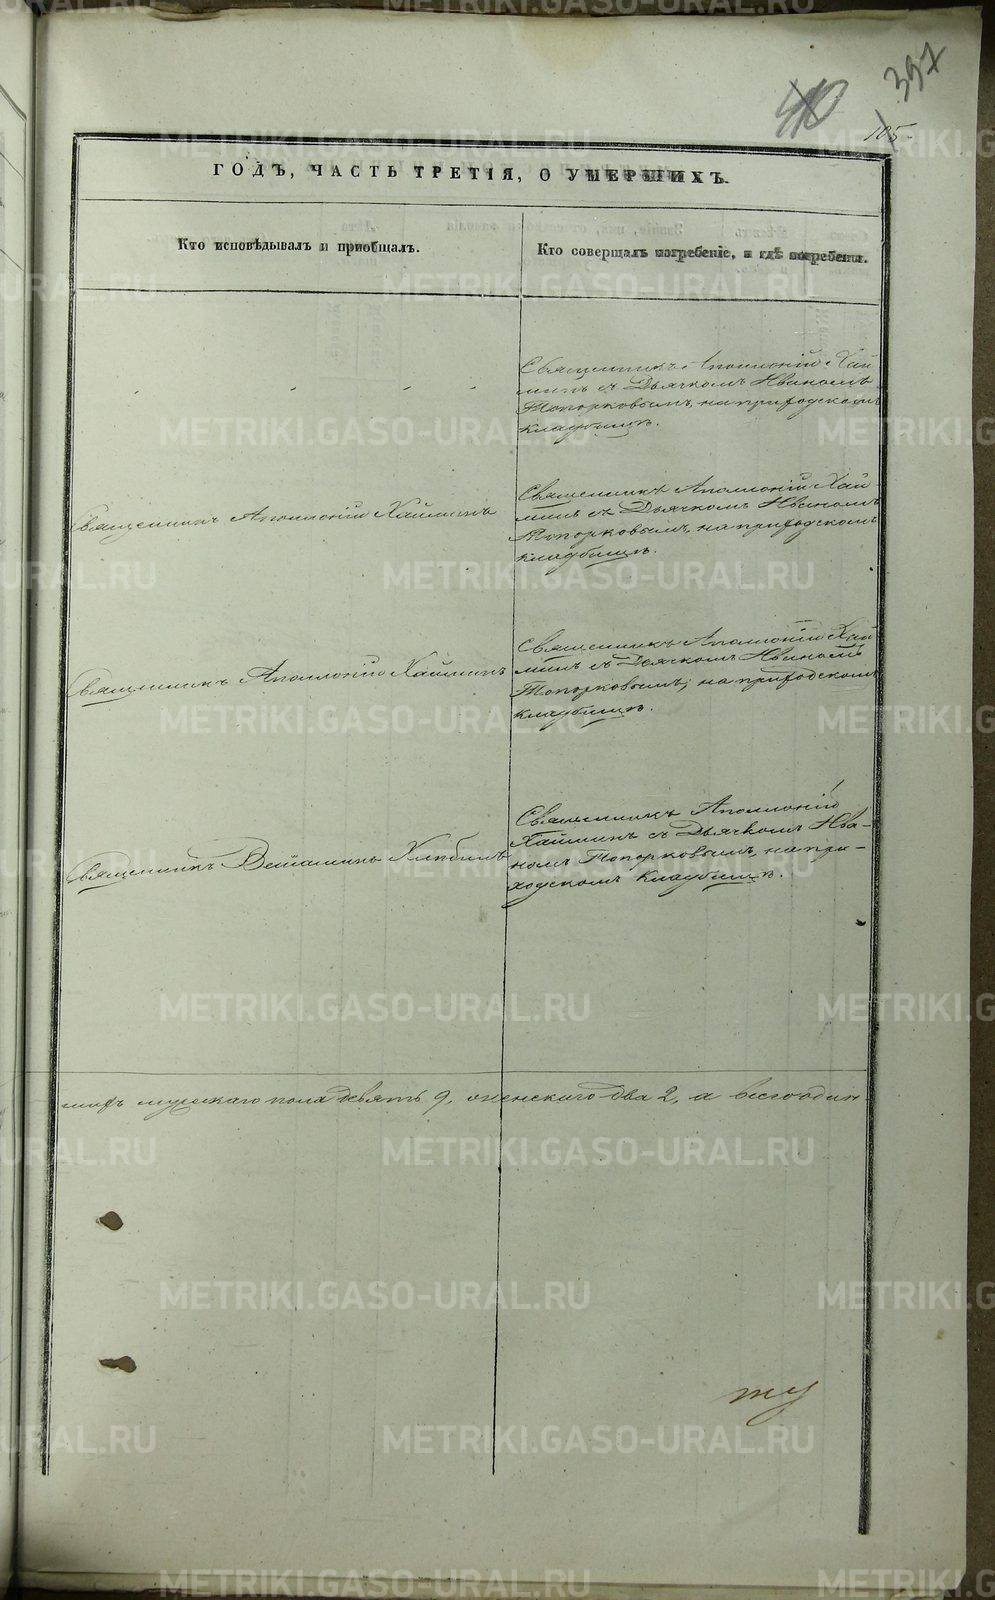 397
105
ГОДЪ, ЧАСТЬ ТРЕТІЯ, О УМЕРШИХЪ.
Кто исповѣдывалъ и пріобщалъ.
Кто совершалъ погребеніе, и гдѣ погребены.
Священникъ Аполлоній Хай
минъ съ Дьячкомъ Иваномъ
Топорковымъ, на приходскомъ
кладбищѣ.
Священникъ Аполлоній Хайминъ
Священникъ Аполлоній Хай
минъ съ Дьячкомъ Иваномъ
Топорковымъ, на приходскомъ
кладбищѣ.
Священникъ Аполлоній Хайминъ
Священникъ Аполлоній Хай
минъ съ Дьячкомъ Иваномъ
Топорковымъ, на приходскомъ
кладбищѣ.
Священникъ
Священникъ Аполлоній
Хайминъ съ Дьячкомъ Ива-
номъ Топорковымъ, на при-
ходскомъ кладбищѣ.
мужескаго пола девять 9, женскаго два 2, а всего один
METRIKI.GASO-URAL.RU